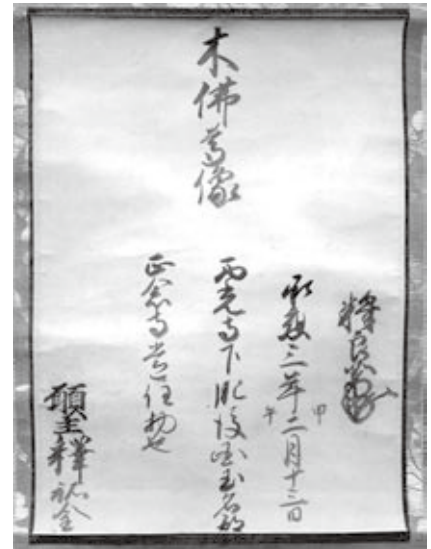 釋良如
承應三年甲午二月十三日
木佛尊像
西光寺下肥後国玉名郡
正念寺常住物也
願主釋祐全